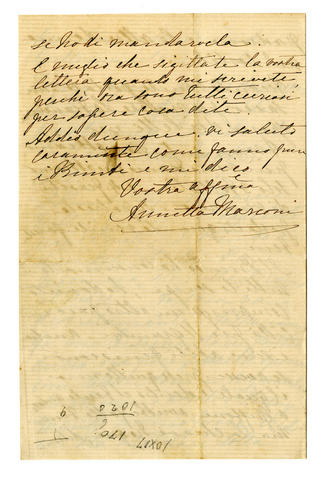 se no di mandarvela.
E meglio che sigittate la vostra
lettera quando mi scrivete,
perchè ora sono tutti curiosi
per sapere cosa dite.
Addio dunque. Vi saluto
caramente come fanno pure
i Bimbi e mi dico
Vostra affma
Annetta Marconi
1020
170
10X17